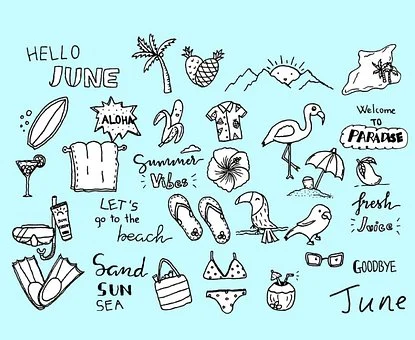 HELLO
JUNE
ALOHA
Welcome
TO
PARADISE
Summer
Vibes
LET'S
go to the
beach
fresh
Juice
Sand
SUN
SEA
GOODBYE
June